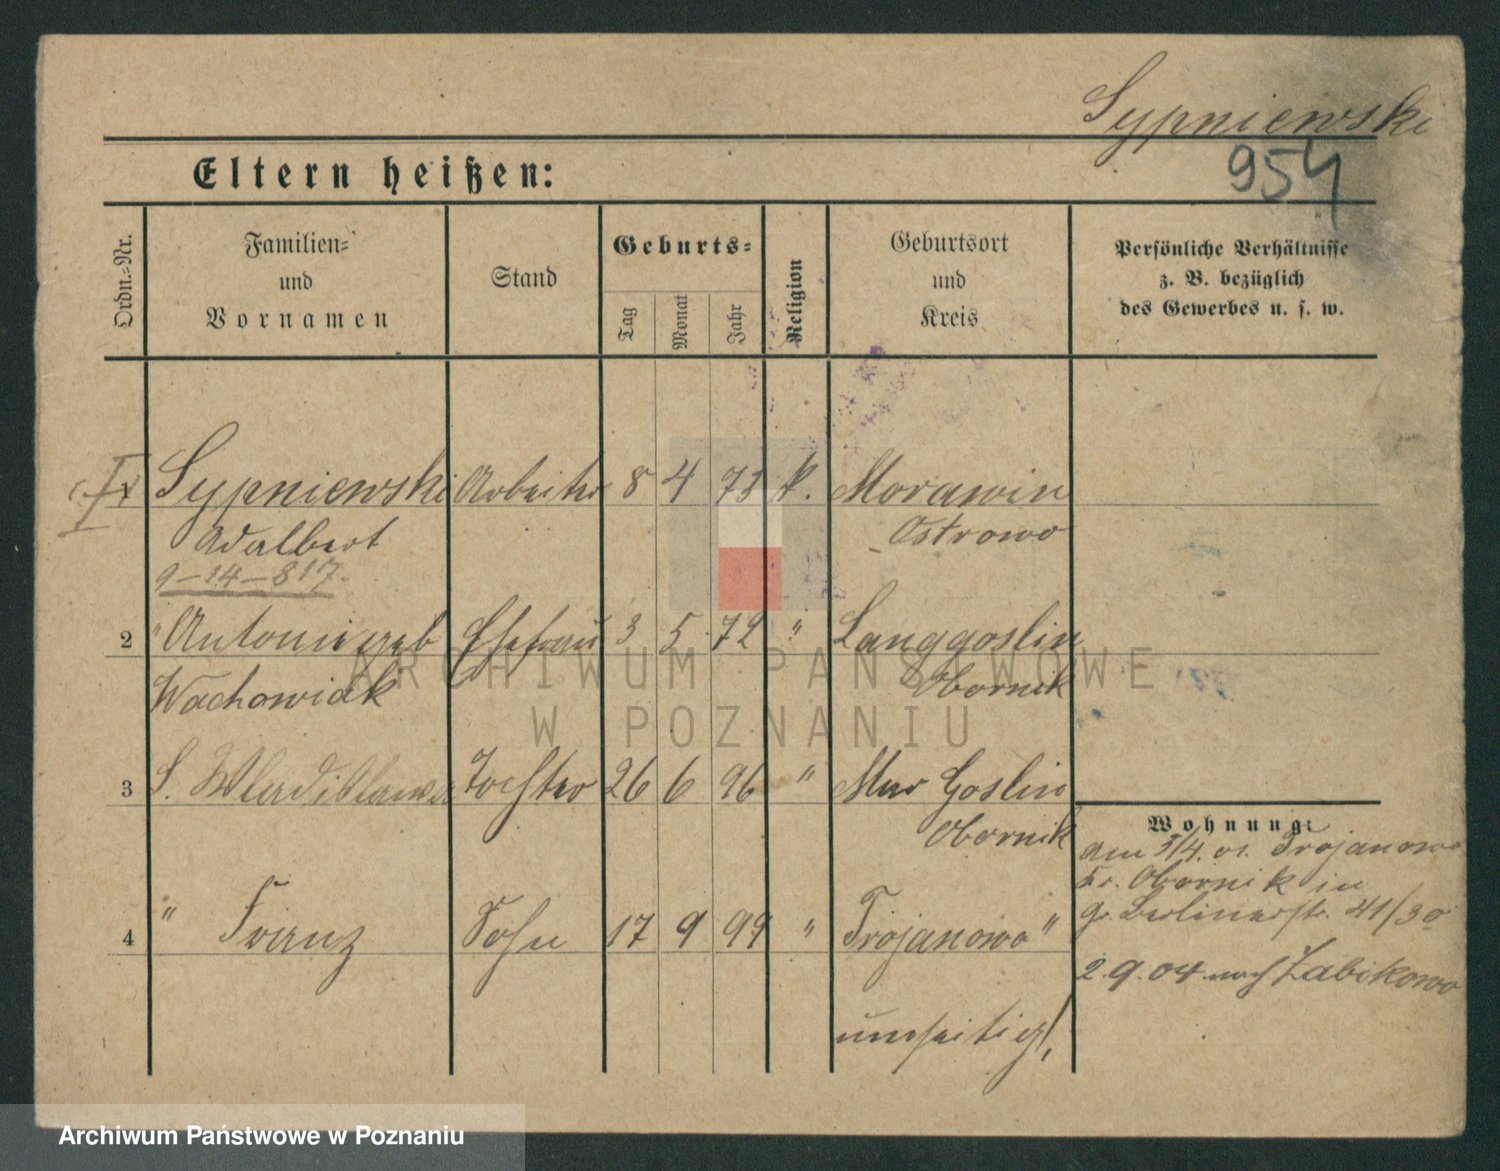 Sypniewski
954
Eltern heißen:
Ordn.-Nr.
Familien- und Vornamen
Stand
Geburts-
Tag
Monat
Jahr
Religion
Geburtsort und Kreis
Persönliche Verhältnisse
z. B. bezüglich
des Gewerbes u. s. w.
1 Sypniewski Arbeiter 8 4 73 k. Morawin
Adalbert Ostrowo
9-14-817.
2 " Antonie geb Ehefrau 3 5 72 " Langgoslin
Wachowiak Obornik
3 S. Wladislawa Tochter 26 6 96 " Mur Goslin
Obornik
4 " Franz Sohn 17 9 99 " Trojanowo "
umseitig!
Wohnung:
am 5/4. 01. Trojanowo
Kr. Obornik in
gr. Berlinerstr. 41/30
2.9.04 nach Zabikowo
ARCHIWUM PAŃSTWOWE
W POZNANIU
Archiwum Państwowe w Poznaniu